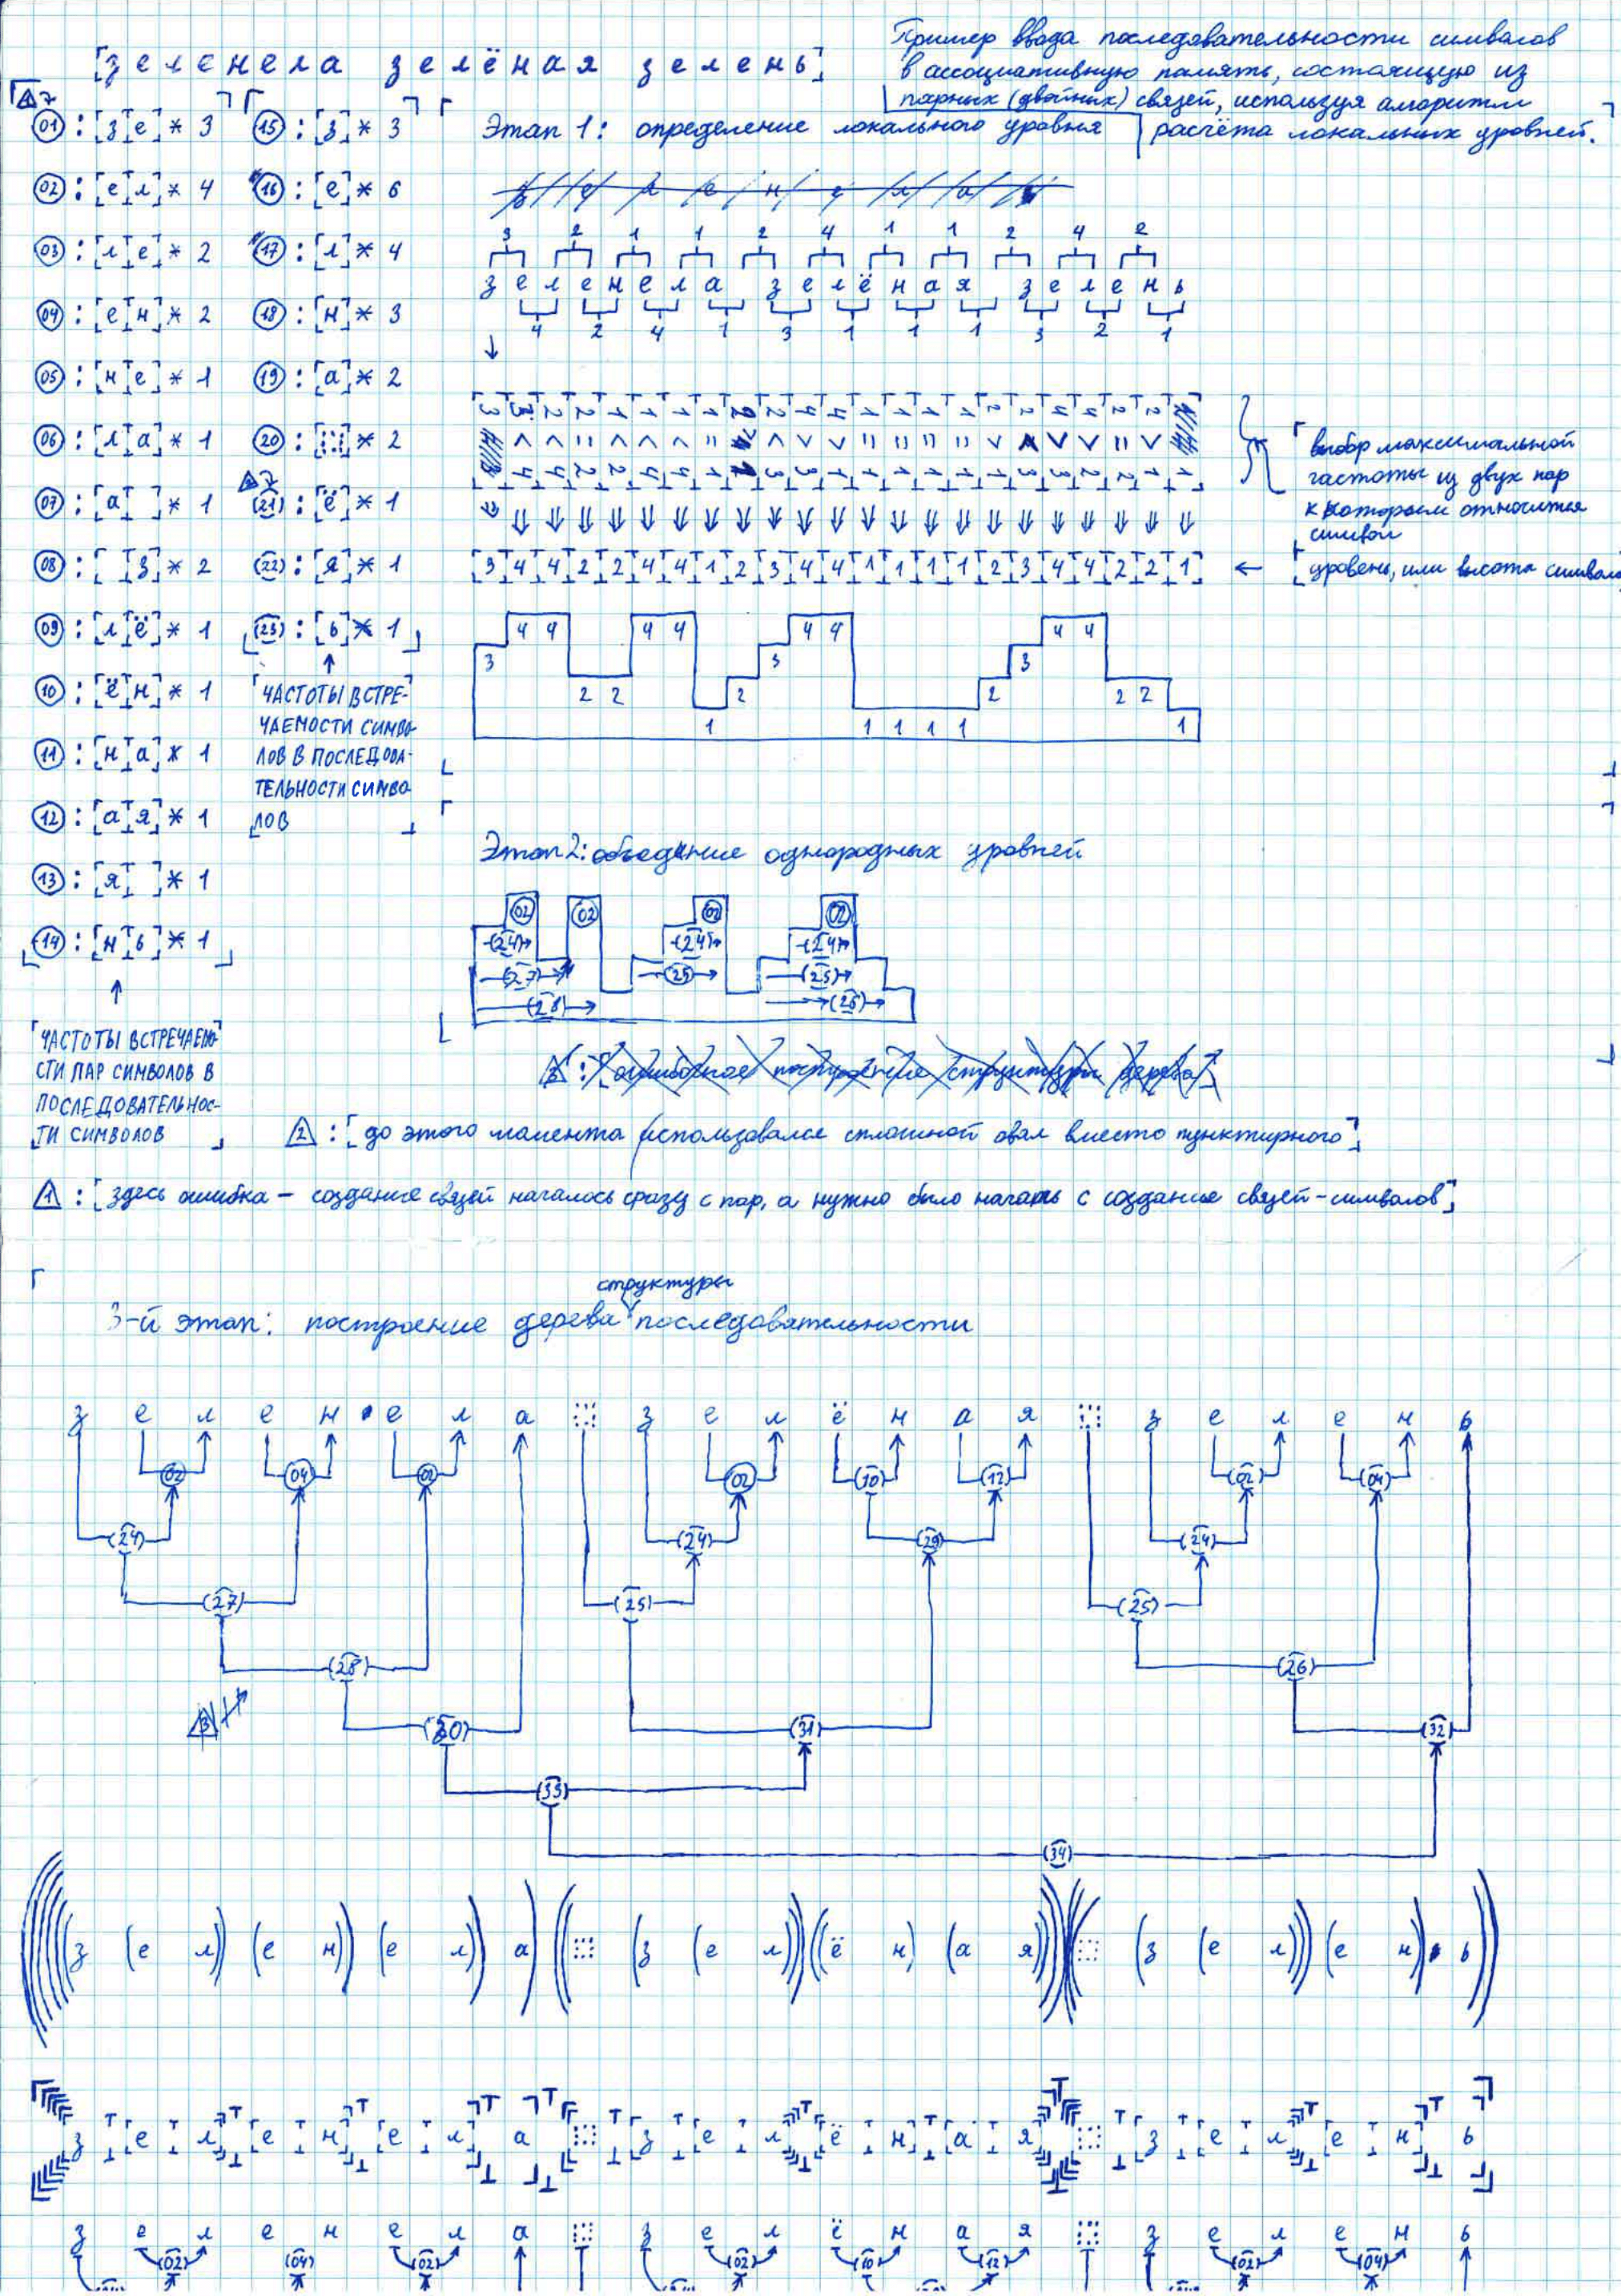 [зеленела зелёная зелень]
Пример ввода последовательности символов
в ассоциативную память, состоящую из
парных (двойных) связей, используя алгоритм
расчёта локальных уровней.
Этап 1: определение локального уровня
1
01 : [з|е] * 3
02 : [е|л] * 4
03 : [л|е] * 2
04 : [е|н] * 2
05 : [н|е] * 1
06 : [л|а] * 1
07 : [а| ] * 1
08 : [ |з] * 2
09 : [л|ё] * 1
10 : [ё|н] * 1
11 : [н|а] * 1
12 : [а|я] * 1
13 : [я| ] * 1
14 : [н|ь] * 1
ЧАСТОТЫ ВСТРЕЧАЕМО
СТИ ПАР СИМВОЛОВ В
ПОСЛЕДОВАТЕЛЬНОС-
ТИ СИМВОЛОВ
15 : [з] * 3
16 : [е] * 6
17 : [л] * 4
18 : [н] * 3
19 : [а] * 2
20 : [ ] * 2
2
21 : [ё] * 1
22 : [я] * 1
23 : [ь] * 1
ЧАСТОТЫ ВСТРЕ-
ЧАЕМОСТИ СИМВО-
ЛОВ В ПОСЛЕДОВА-
ТЕЛЬНОСТИ СИМВО
ЛОВ
3 2 1 1 2 4 1 1 2 4 2
з е л е н е л а з е л ё н а я з е л е н ь
4 2 4 1 3 1 1 1 3 2 1
выбор максимальной
частоты из двух пар
к которым относится
символ
3 4 4 2 2 4 4 1 2 3 4 4 1 1 1 1 2 3 4 4 2 2 1
← уровень, или высота символа
4 4 4 4 4 4 4 4
3 3 3
2 2 2 2 2 2
1 1 1 1 1 1
Этап 2: объединие однородных уровней
02 02 02 02
24 24 24
27 25 25
28 26
2 : [до этого момента использовался сплошной овал вместо пунктирного]
1 : [здесь ошибка - создание связей началось сразу с пар, а нужно было начать с создание связей-символов]
структуры
3-й этап: построение дерева последовательности
з е л е н е л а з е л ё н а я з е л е н ь
02 04 02 02 10 12 02 04
24 24 29 24
27 25 25
28 26
3 30 31 32
33
34
(((((з (е л)) (е н)) (е л)) а) (( (з (е л))) ((ё н) (а я)))) ((( (з (е л))) (е н)) ь))
з е л е н е л а з е л ё н а я з е л е н ь
з е л е н е л а з е л ё н а я з е л е н ь
02 04 02 02 10 12 02 04